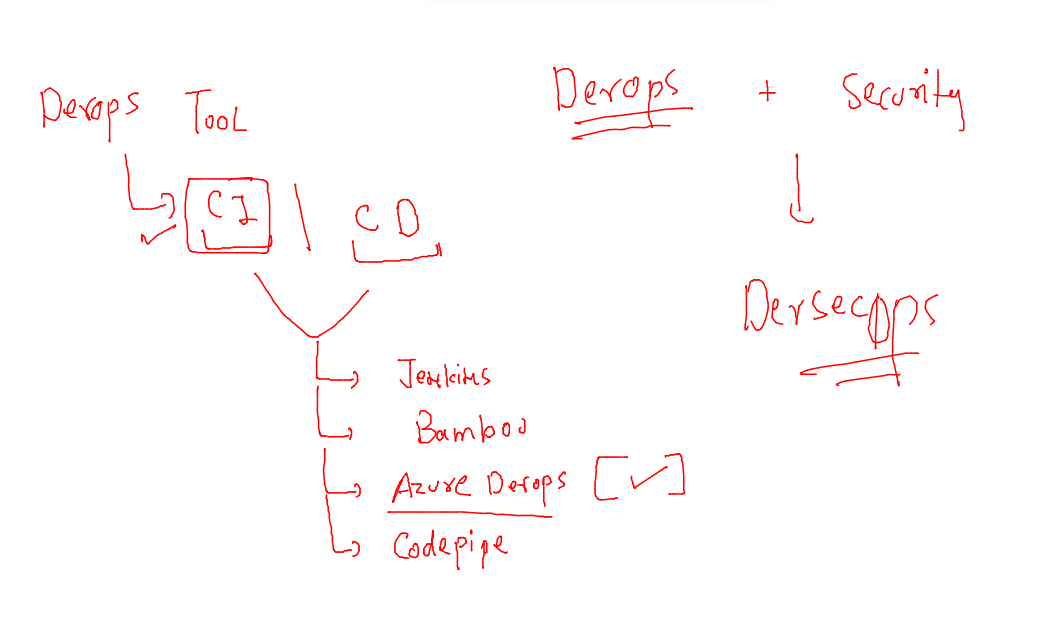 Devops Tool
CI | CD
Jenkins
Bamboo
Azure Devops [✓]
Codepipe
Devops + Security
Devsecops